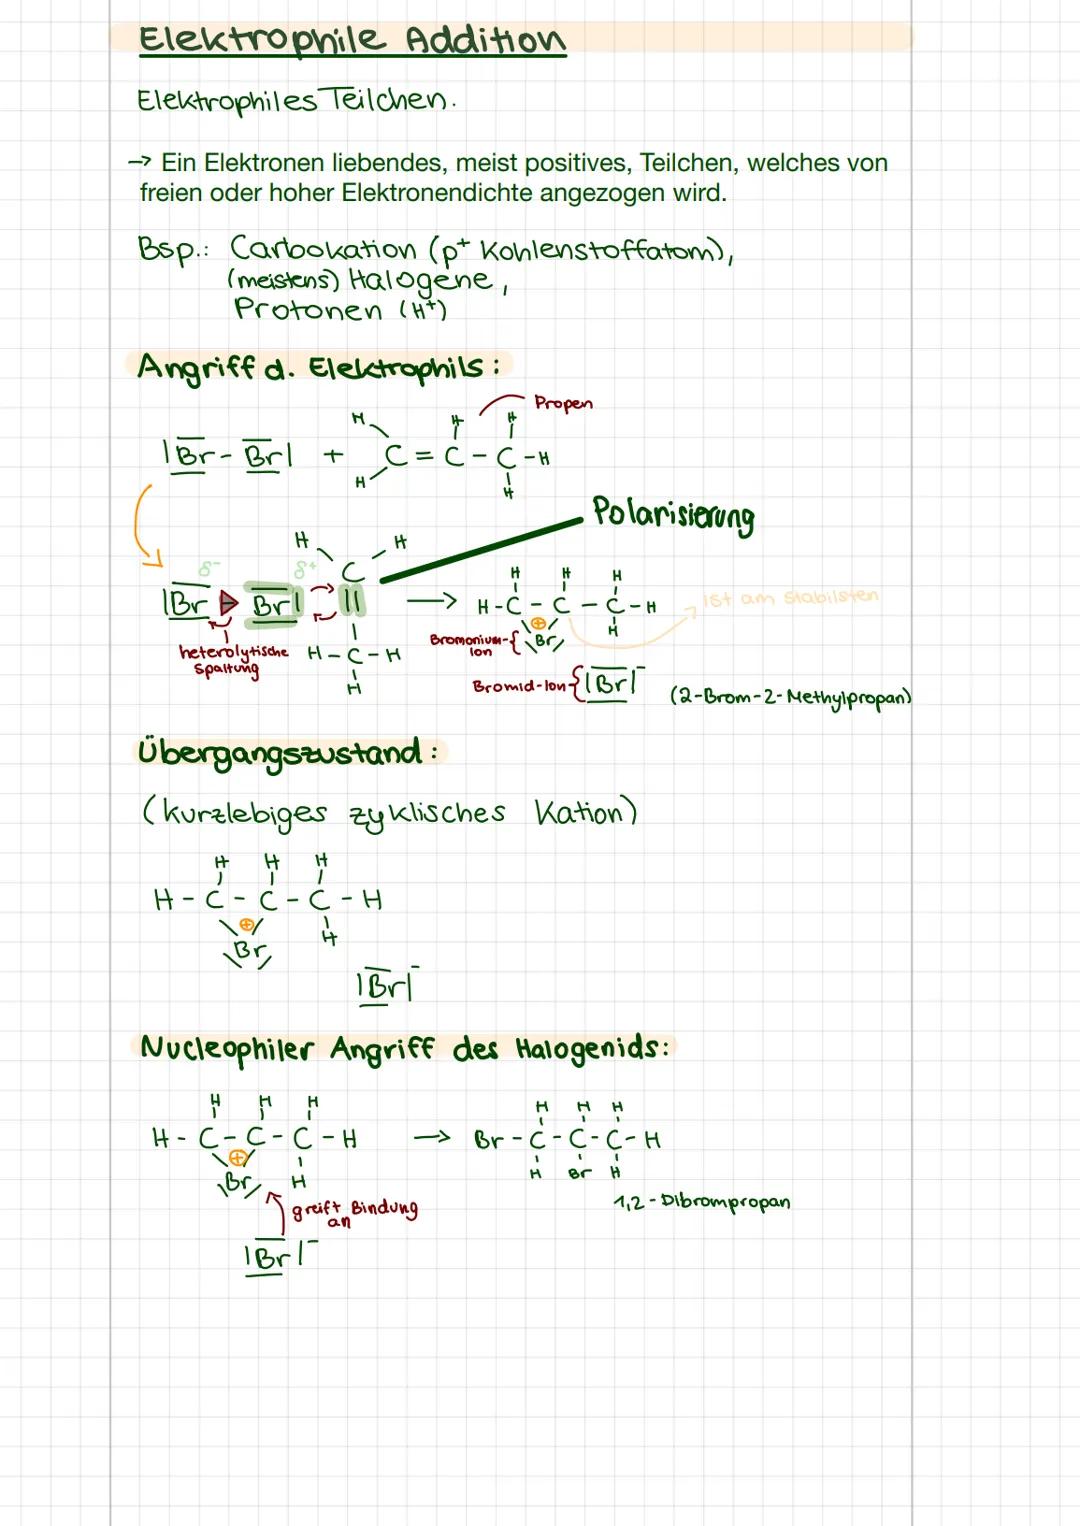 Elektrophile Addition
Elektrophiles Teilchen.
→ Ein Elektronen liebendes, meist positives, Teilchen, welches von
freien oder hoher Elektronendichte angezogen wird.
Bsp.: Carbokation (p+ Kohlenstoffatom),
(meistens) Halogene,
Protonen (H+)
Angriff d. Elektrophils:
Propen
H H H
|Br - Br| + C = C - C - H
H H
Polarisierung
H H
δ- δ+ C
H H H
|Br Br| || → H - C - C - C - H
ist am stabilsten
⊕ H
heterolytische
Spaltung
H - C - H
H
Bromonium-
Ion
{ Br
Bromid-Ion { |Br|-
(2-Brom-2-Methylpropan)
Übergangszustand:
(kurzlebiges zyklisches Kation)
H H H
H - C - C - C - H
⊕ H
Br
|Br|-
Nucleophiler Angriff des Halogenids:
H H H
H - C - C - C - H
⊕
Br H
greift Bindung
an
|Br|-
→
H H H
Br - C - C - C - H
H Br H
1,2 - Dibrompropan